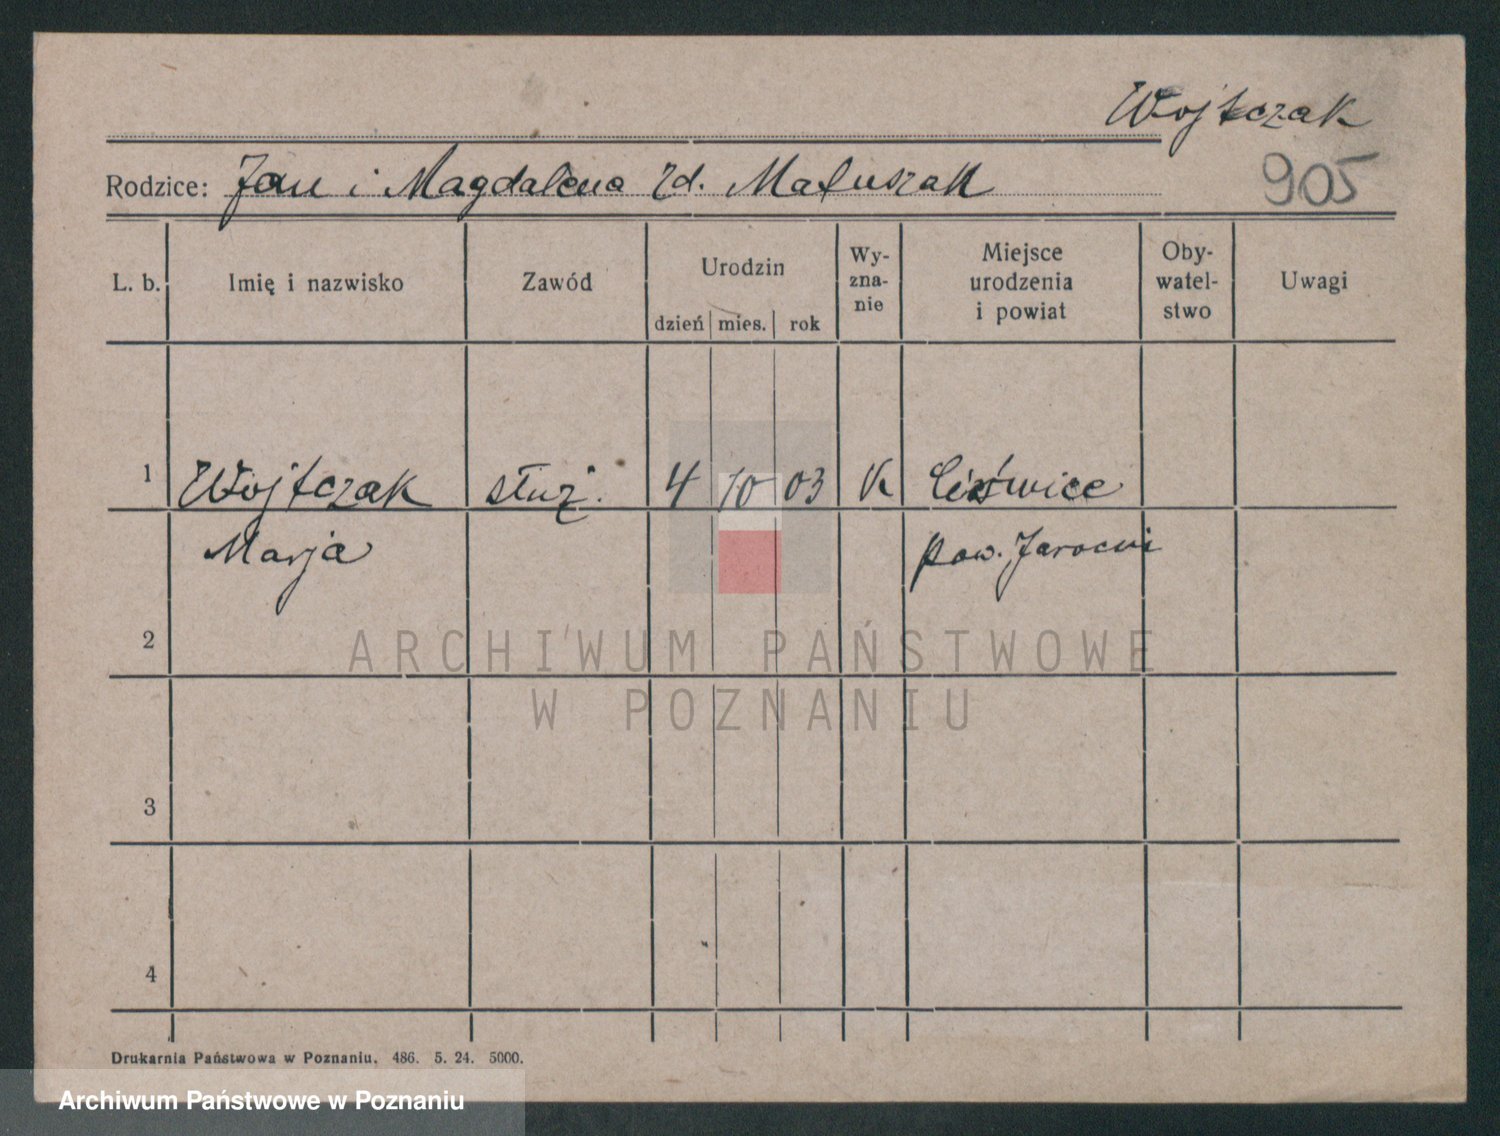 Wojtczak
Rodzice: Jan i Magdalena zd. Matuszak
905
L. b. Imię i nazwisko Zawód Urodzin Wy-zna-nie Miejsce urodzenia i powiat Oby-watel-stwo Uwagi
dzień mies. rok
1 Wojtczak służ. 4 10 03 K
Marja pow. Jarocin
2
ARCHIWUM PAŃSTWOWE
W POZNANIU
3
4
Drukarnia Państwowa w Poznaniu. 486. 5. 24. 5000.
Archiwum Państwowe w Poznaniu